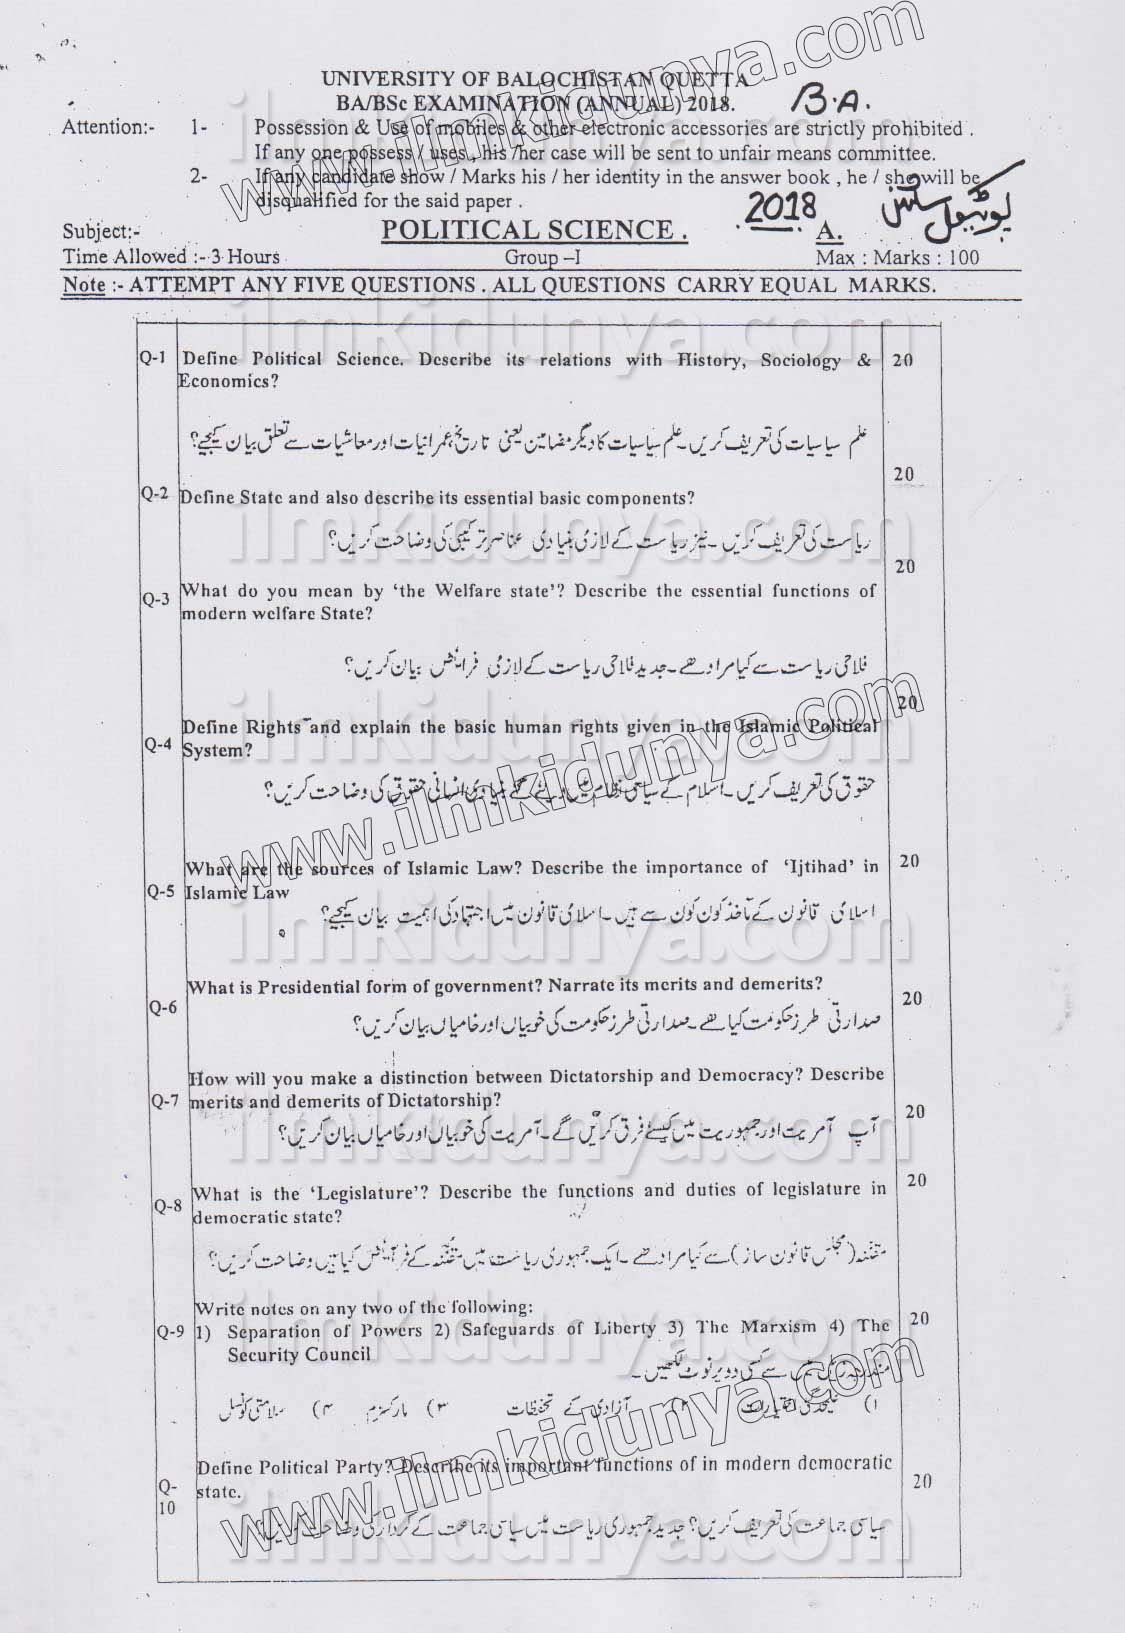 UNIVERSITY OF BALOCHISTAN QUETTA
BA/BSc EXAMINATION (ANNUAL) 2018. B.A.
Attention:- 1- Possession & Use of mobiles & other electronic accessories are strictly prohibited .
If any one possess / uses , his /her case will be sent to unfair means committee.
2- If any candidate show / Marks his / her identity in the answer book , he / she will be
disqualified for the said paper .
2018 پولیٹیکل سائنس
Subject:- POLITICAL SCIENCE . A.
Time Allowed :- 3 Hours Group –I Max : Marks : 100
Note :- ATTEMPT ANY FIVE QUESTIONS . ALL QUESTIONS CARRY EQUAL MARKS.
Q-1 Define Political Science. Describe its relations with History, Sociology & 20
Economics?
علم سیاسیات کی تعریف کریں۔ علم سیاسیات کا دیگر مضامین یعنی تاریخ، عمرانیات اور معاشیات سے تعلق بیان کیجیے؟
20
Q-2 Define State and also describe its essential basic components?
ریاست کی تعریف کریں ۔ نیز ریاست کے لازمی بنیادی عناصر ترکیبی کی وضاحت کریں؟
20
Q-3 What do you mean by ‘the Welfare state’? Describe the essential functions of
modern welfare State?
فلاحی ریاست سے کیا مراد ھے ۔ جدید فلاحی ریاست کے لازمی فرائض بیان کریں؟
20
Q-4 Define Rights and explain the basic human rights given in the Islamic Political
System?
حقوق کی تعریف کریں ۔ اسلام کے سیاسی نظام میں دیئے گئے بنیادی انسانی حقوق کی وضاحت کریں؟
What are the sources of Islamic Law? Describe the importance of ‘Ijtihad’ in 20
Q-5 Islamic Law
اسلامی قانون کے مآخذ کون کون سے ہیں ۔ اسلامی قانون میں اجتہاد کی اہمیت بیان کیجیے؟
What is Presidential form of government? Narrate its merits and demerits? 20
Q-6
صدارتی طرز حکومت کیا ھے ۔ صدارتی طرز حکومت کی خوبیاں اور خامیاں بیان کریں؟
How will you make a distinction between Dictatorship and Democracy? Describe
Q-7 merits and demerits of Dictatorship? 20
آپ آمریت اور جمہوریت میں کیسے فرق کریں گے ۔ آمریت کی خوبیاں اور خامیاں بیان کریں؟
Q-8 What is the ‘Legislature’? Describe the functions and duties of legislature in 20
democratic state?
مقننہ (مجلس قانون ساز) سے کیا مراد ھے ۔ ایک جمہوری ریاست میں مقننہ کے فرائض کیا ہیں وضاحت کریں؟
Write notes on any two of the following: 20
Q-9 1) Separation of Powers 2) Safeguards of Liberty 3) The Marxism 4) The
Security Council
مندرجہ ذیل میں سے کسی دو پر نوٹ لکھیں ۔
۱) علیحدگی اختیارات ۲) آزادی کے تحفظات ۳) مارکسزم ۴) سلامتی کونسل
Define Political Party? Describe its important functions of in modern democratic 20
Q-10 state.
سیاسی جماعت کی تعریف کریں؟ جدید جمہوری ریاست میں سیاسی جماعت کے کردار کی وضاحت کریں؟
www.ilmkidunya.com
www.ilmkidunya.com
www.ilmkidunya.com
ilmkidunya.com
ilmkidunya.com
ilmkidunya.com
ilmkidunya.com
ilmkidunya.com
ilmkidunya.com
ilmkidunya.com
ilmkidunya.com